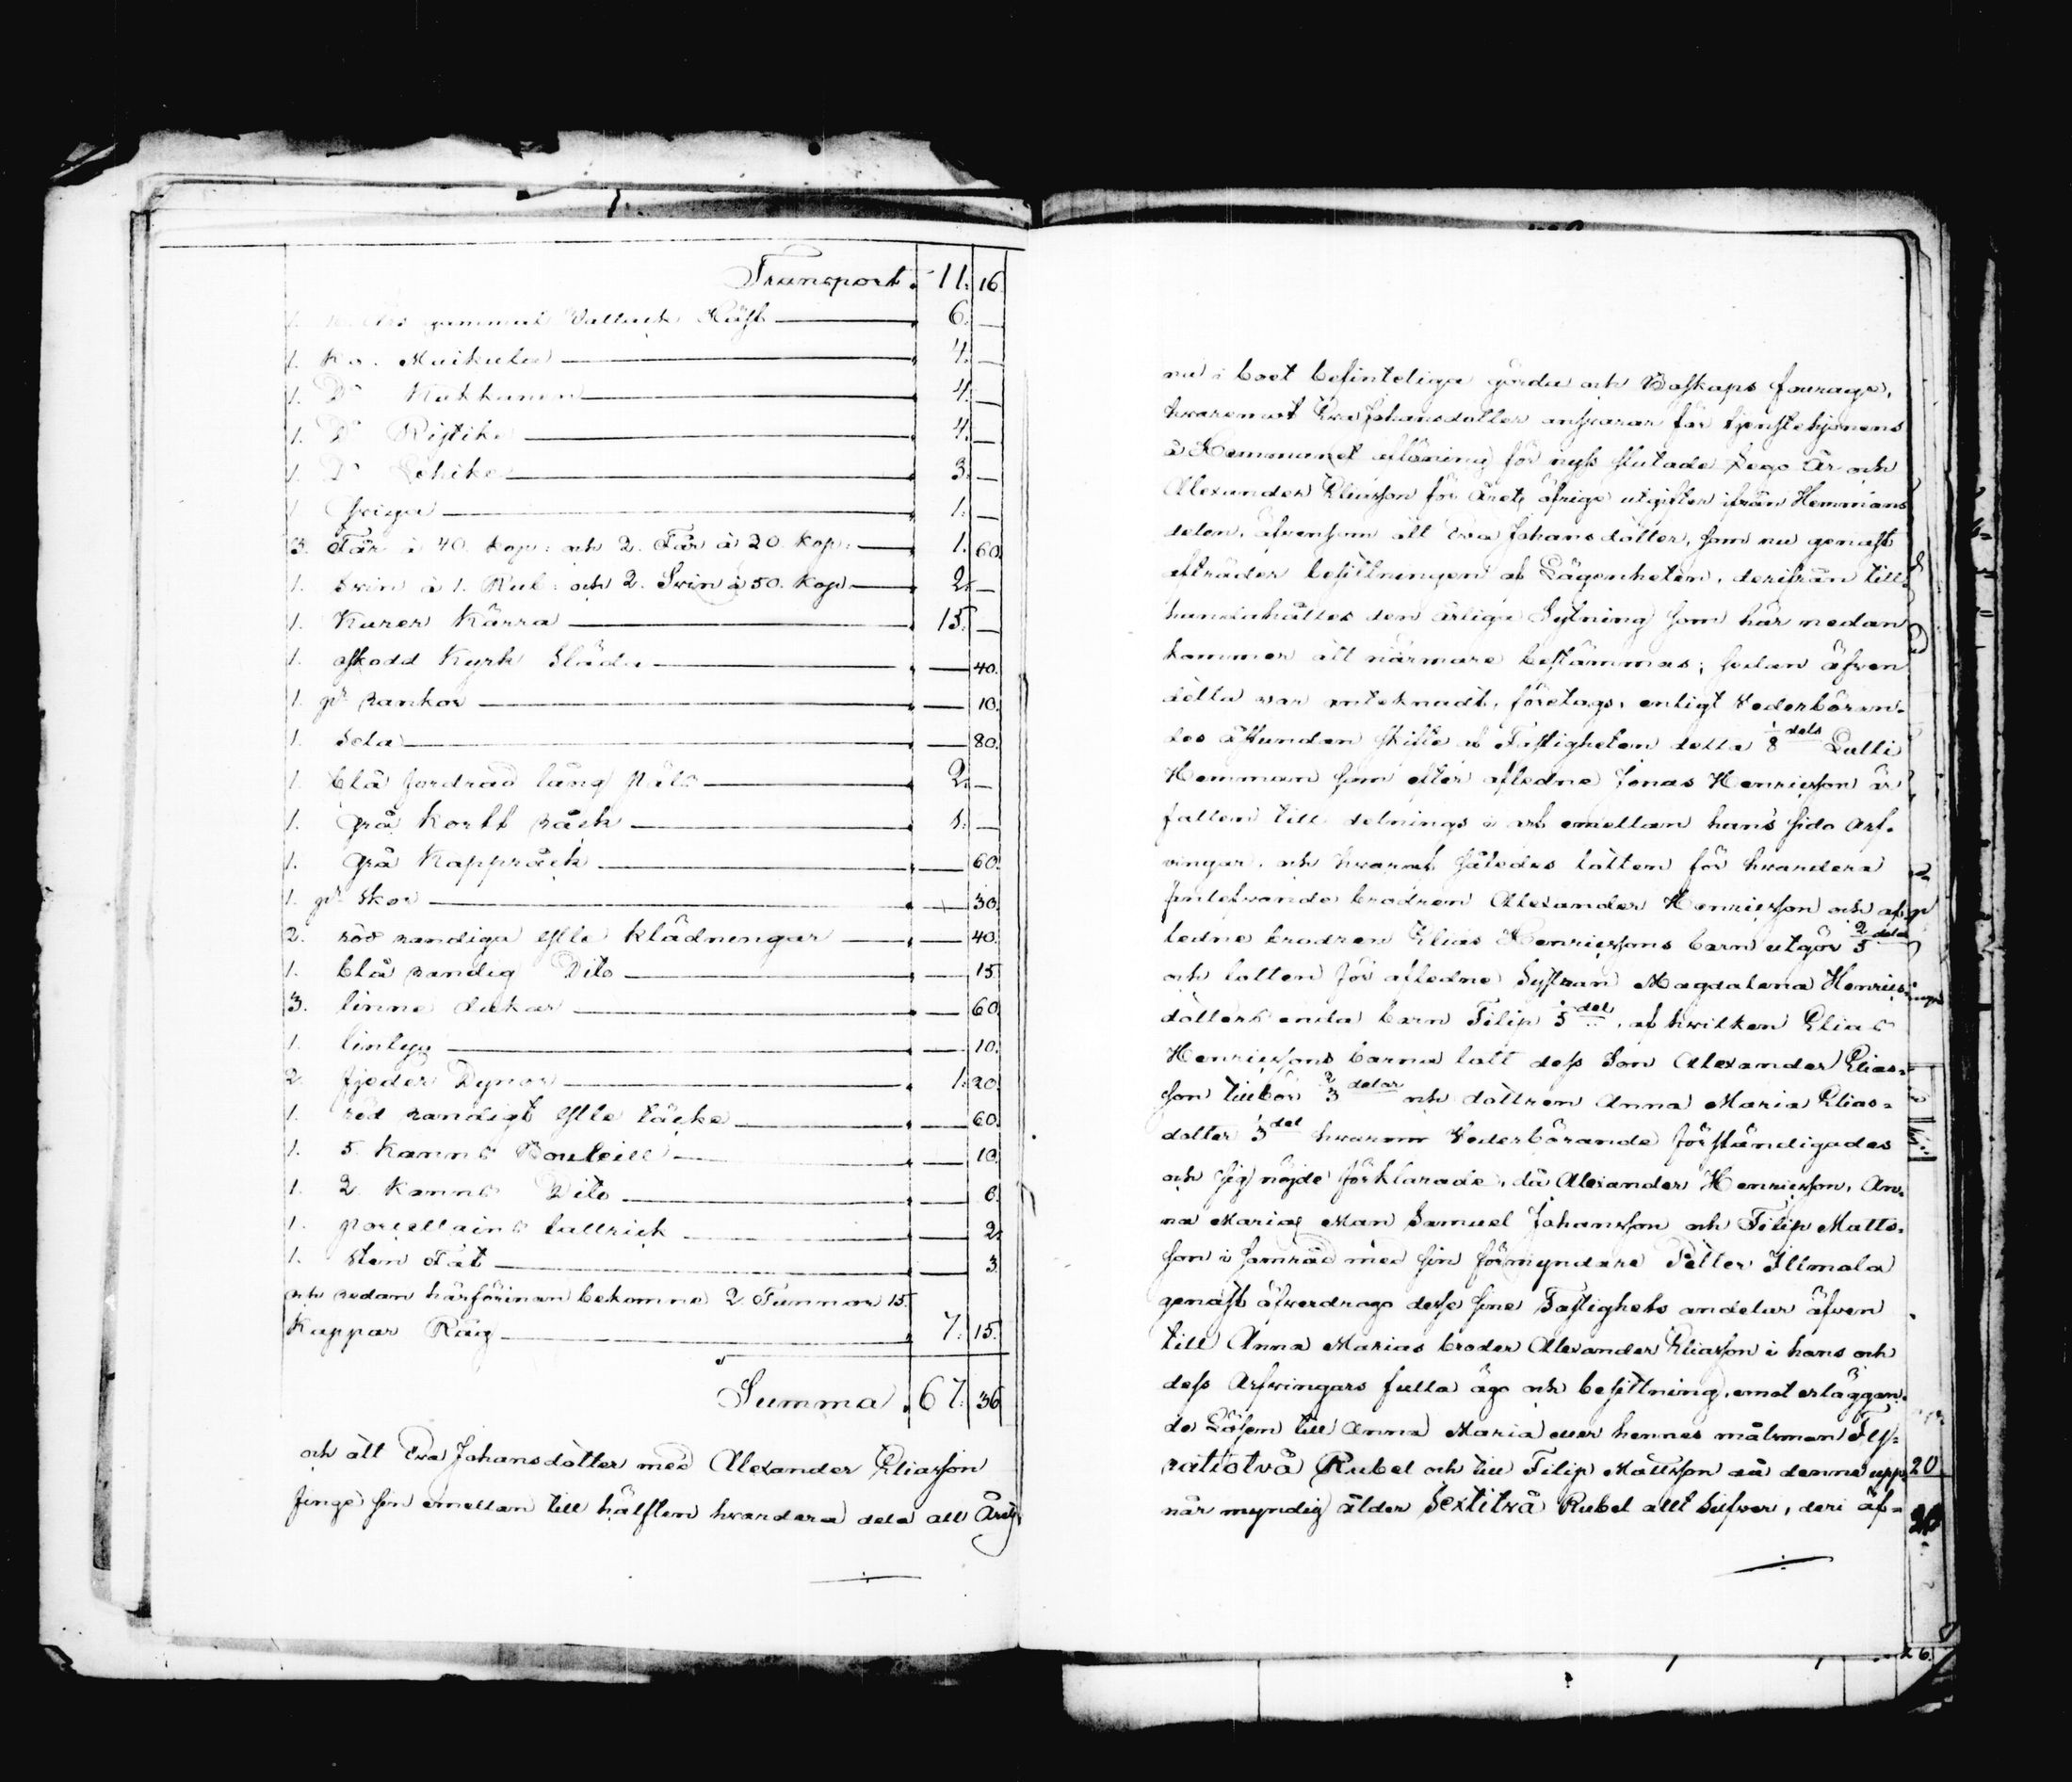 Transport. 11. 16.
1. års gammal Vallack Häst 6. —
1. Ko. Muikula 4. —
1. Do Kukkanen 4. —
1. Do Ristike 4. —
1. Do Lehike 3. —
1. qviga 1. —
3. Får à 40. kop: och 2. Får à 20. kop: 1. 60.
1. Svin à 1. Rub: och 2. Svin à 50. kop 2. —
1. Kurer Kärra 15. —
1. oskodd Kyrk Släda — 40.
1. pr rankor — 10.
1. Sela — 80.
1. blå fordrad lång Päls 2. —
1. grå kortt råck 1. —
1. Grå Kappråck — 60.
1. pr skor — 30.
2. röd randiga ylle klädningar — 40.
1. blå randig Dito — 15
3. linne dukar — 60.
1. lintyg — 10.
2. fjeder Dynor 1. 20.
1. röd randigt ylle täcke — 60.
1. 5. kanns Bouteill — 10.
1. 2. kanns Dito — 6.
1. porcellains tallrick — 2.
1. sten Fat — 3.
och redan härförinnan bekomne 2 Tunnor 15.
Kappar Råg 7. 15.
Summa. 67. 36
och att Eva Johansdotter med Alexander Eliasson
finge sin emellan till hälften hvardera dela all Årets
nu i boet befinteliga gärda och Boskaps fourage,
hvaremot Eva Johansdotter ansvarar för tjenstehjonens
å Hemmanet aflöning för nyss slutade Lego År och
Alexander Eliasson för årets öfrige utgifter ifrån Hemmans
delen, äfvensom att Eva Johansdotter, som nu genast
afträder besittningen af Lägenheten, derifrån till
handahålles den årliga Sytning som här nedan
kommer att närmare bestämmas; sedan äfven
detta var antecknadt, företogs, enligt Vederböran-
des åstundan skifte af Fastigheten detta 1/8 dels Lulli
Hemman som efter afledne Jonas Henricsson är
fallen till delnings i arf emellan hans sido arf-
vingar, och hvaraf således lotten för hvardera
qvarlefvande brodren Alexander Henricsson och af-
ledne brodren Elias Henricssons barn utgör 2/5 delar
och lotten för afledne Systran Magdalena Henrics-
dotters enda barn Filip 1/5 del, af hvilken Elias
Henricssons barns lott dess Son Alexander Elias-
son tillhör 2/3 delar och dottren Anna Maria Elias-
dotter 1/3 del hvarom Vederbörande förständigades
och sig nöjde förklarade, då Alexander Henricsson, An-
na Marias Man Samuel Johansson och Filip Matts-
son i samråd med sin förmyndare Petter Ilmola
genast öfverdrogo desse sine Fastighets andelar äfven
till Anna Marias broder Alexander Eliasson i hans och
dess Arfvingars fulla ägo och besittning, emot erläggan-
de Lösen till Anna Maria eller hennes målsman Fyr-
ratiotvå Rubel och till Filip Mattsson då denne upp-
når myndig ålder Sextitvå Rubel allt Silfver, deri äf-
20